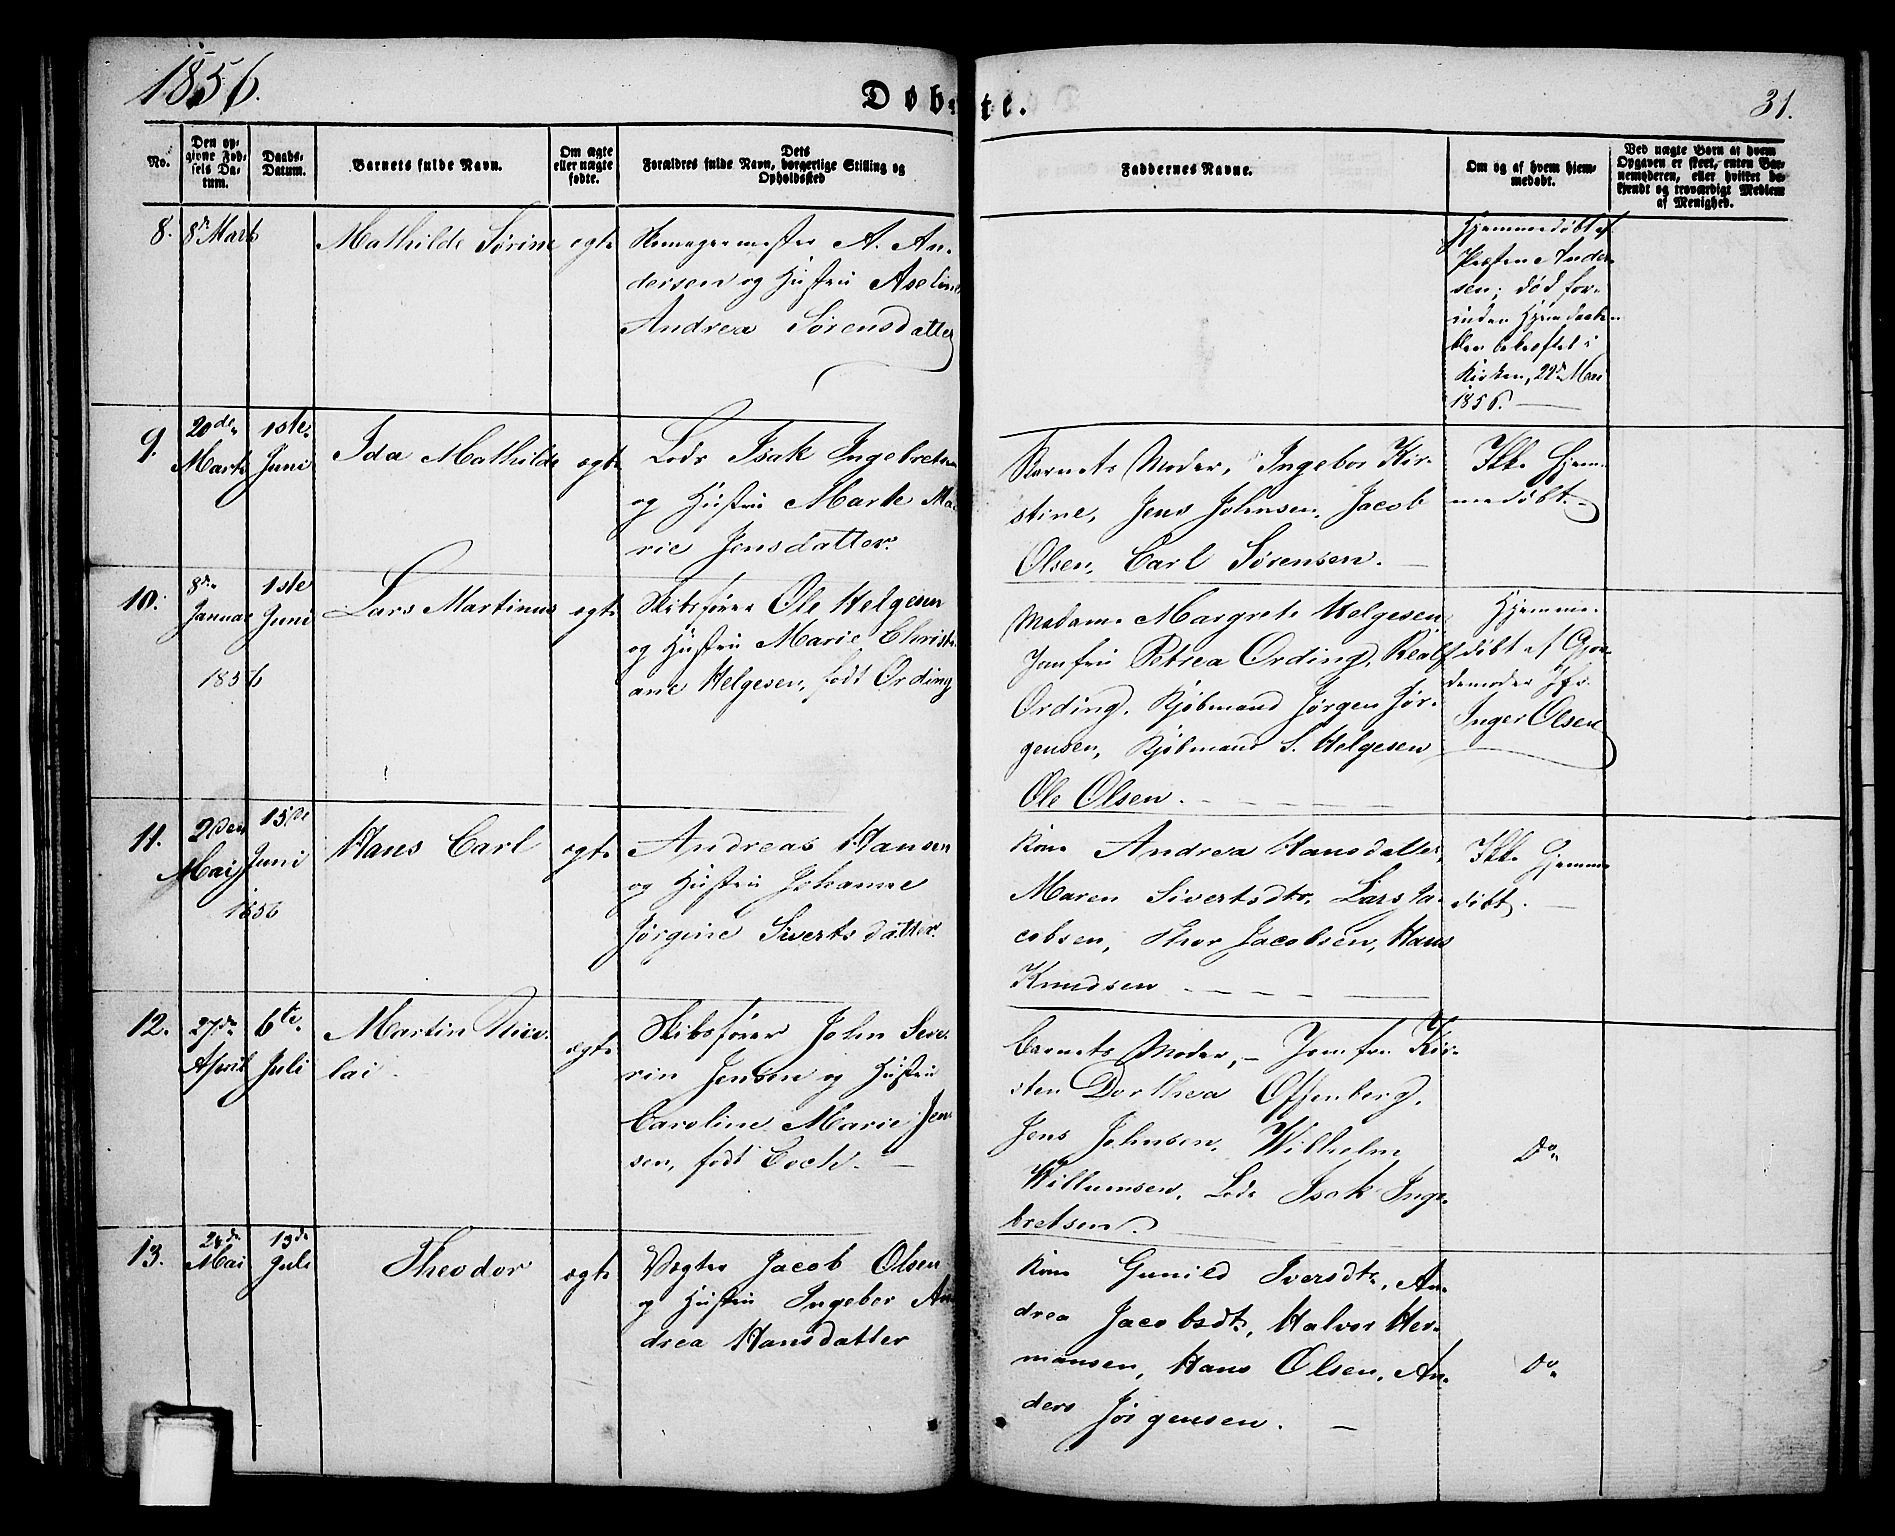 1856.
Døbte.
31.
No.
Den op-
givne Fød-
sels Da-
tum.
Daabs-
Datum.
Barnets fulde Navn.
Om ægte
eller uægte
fødte.
Dets
Forældres fulde Navn, borgerlige Stilling og
Opholdssted
Faddernes Navne.
Om og af hvem hjem-
medøbt.
Ved uægte Børn af hvem
Opgaven er skeet, enten Bar-
nemoderen, eller hvilket be-
kjendt og troværdigt Medlem
af Menighed.
8.
8de Marts
Mathilde Sørine
egte
A. An-
dersen og Hustru Aseline
Andrea Sørensdatter
Hjemmedøbt af
Præsten Ander-
sen; død for-
inden Hjemdaaben
blev bekræftet i
Kirken, 22de Mai
1856.
9.
20de
Marts
1ste
Juni
Ida Mathilde
ægte
Lods Isak Ingebretsen
og Hustru Marte Ma-
rie Jensdatter.
Barnets Moder, Ingebor Kir-
stine, Jens Johnsen, Jacob
Olsen, Carl Sørensen.
Ikke Hjem-
medøbt.
10.
8de
Januar
1856
1ste
Juni
Lars Martinus
egte
Skibsfører Ole Helgesen
og Hustru Marie Christi-
ane Helgesen, født Ording
Madame Margrete Helgesen,
Jomfru Petrea Ording, Realf
Ording, Kjøbmand Jørgen Jør-
gensen, Kjøbmand S. Helgesen
Ole Olsen.
Hjemme-
døbt af Gjor-
demoder Jfr.
Inger Olsen
11.
2den
Mai
1856
15de
Juni
Hans Carl
egte
Andreas Hansen
og Hustru Johanne
Jørgine Sivertsdatter.
Kone Andrea Hansdatter,
Maren Sivertsdtr. Lars Ja-
cobsen, Thor Jacobsen, Hans
Knudsen
Ikke Hjemme
døbt.
12.
27de
April
6te
Juli
Martin Nico-
lai
ægte
Skibsfører John Seve-
rin Jensen og Hustru
Caroline Marie Jen-
sen, født Coch.
Barnets Moder, Jomfru Kir-
sten Dorthea Offenberg,
Jens Johnsen, Wilhelm
Willumsen, Lods Isak Inge-
bretsen.
Do
13.
Mai
13de
Juli
Theodor
ægte
Vægter Jacob Olsen
og Hustru Ingebor An-
drea Hansdatter
Kone Gunild Iversdtr, An-
drea Jacobsdtr, Halvor Her-
mansen, Hans Olsen, An-
ders Jørgensen.
Do